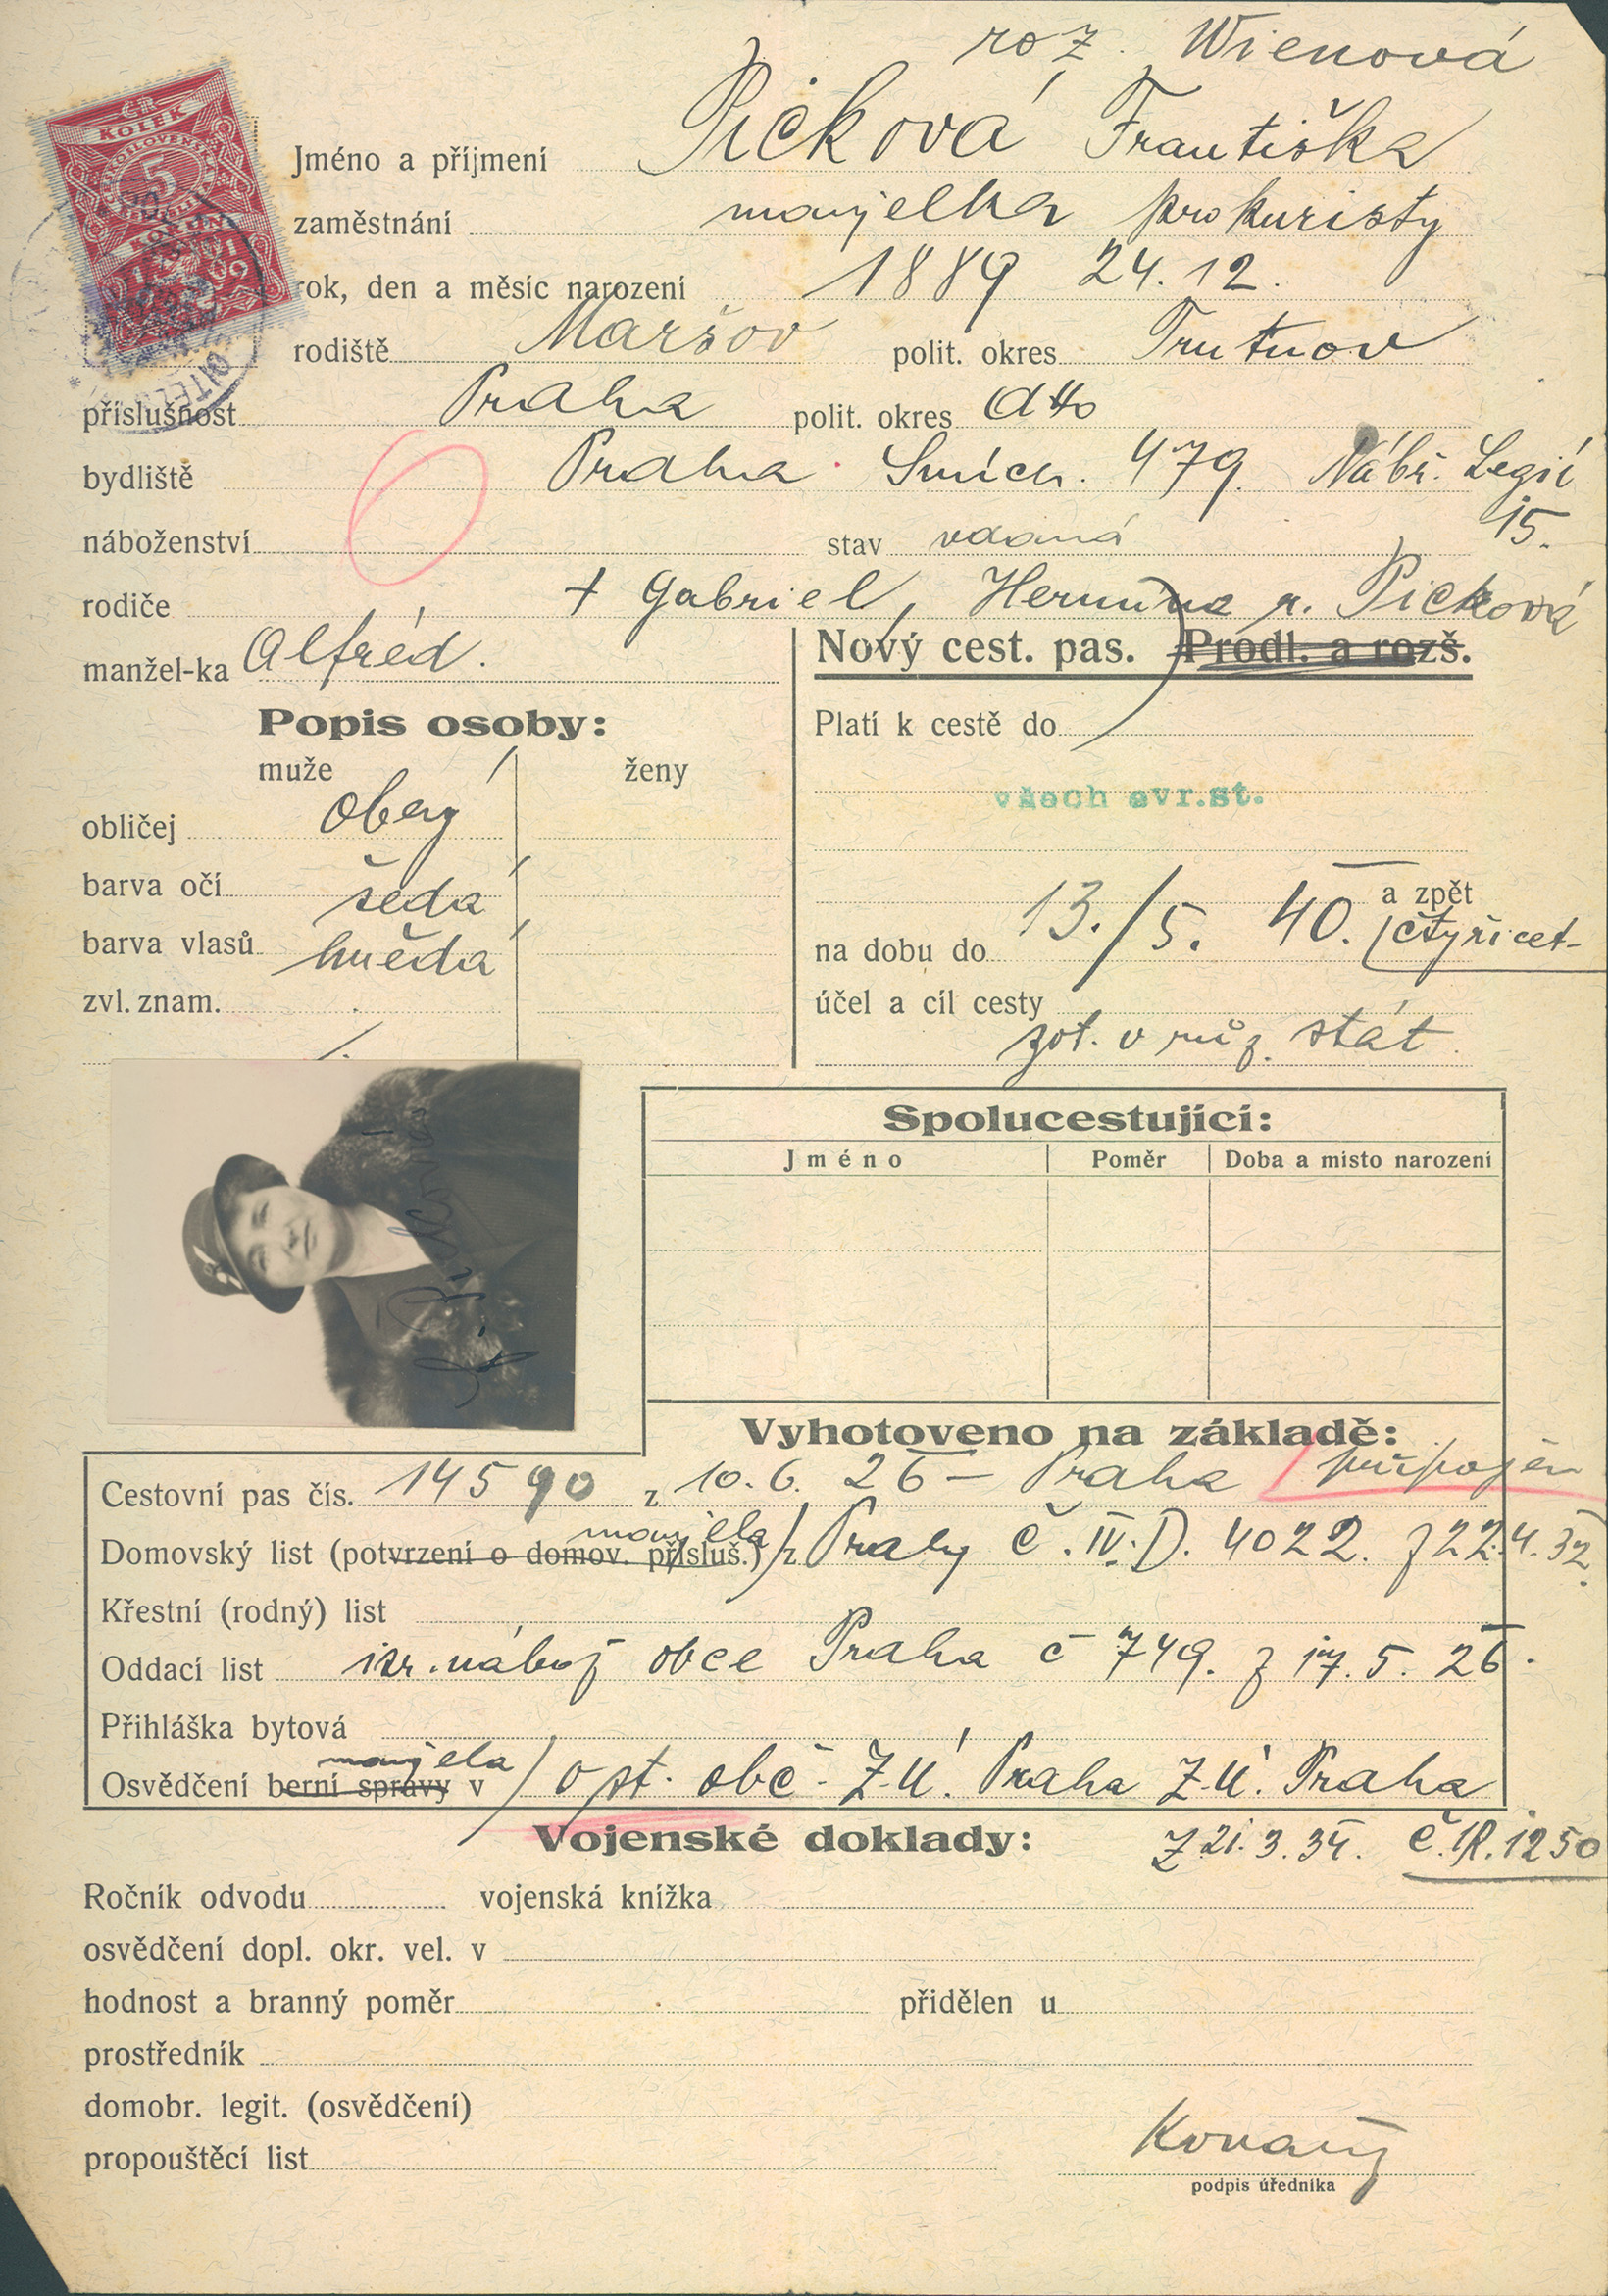 roz. Wienová
ČR
KOLEK
ČESKOSLOVENSKÁ
5
KORUN
Jméno a příjmení Picková Františka
zaměstnání manželka prokuristy
rok, den a měsíc narození 1889 24. 12.
rodiště Maršov polit. okres Trutnov
příslušnost Praha polit. okres dtto
bydliště Praha Smích. 479. Nábř. Legií
15.
náboženství stav vdaná
rodiče + Gabriel, Hermína r. Picková
manžel-ka Alfréd.
Nový cest. pas. Prodl. a rozš.
Popis osoby:
muže ženy
obličej
barva očí šedá
barva vlasů hnědá
zvl. znam.
Platí k cestě do
všech evr.st.
a zpět
na dobu do 13./5. 40. (čtyřicet-
účel a cíl cesty
zot. v růz. stát.
Picková
Spolucestující:
Jméno Poměr Doba a místo narození
Vyhotoveno na základě:
Cestovní pas čís. 14590 z 10. 6. 26 – Praha připojen
manžela
Domovský list (potvrzení o domov. přísluš.) z Prahy č. IV. D. 4022. z 22.4. 32.
Křestní (rodný) list
Oddací list isr. nábož obce Praha č 749. z 17. 5. 26.
Přihláška bytová
manžela
Osvědčení berní správy v opt. obč. Z.Ú. Praha Z.Ú. Praha
Vojenské doklady: Z 21. 3. 34. č. IR. 1250
Ročník odvodu vojenská knížka
osvědčení dopl. okr. vel. v
hodnost a branný poměr přidělen u
prostředník
domobr. legit. (osvědčení)
propouštěcí list
podpis úředníka